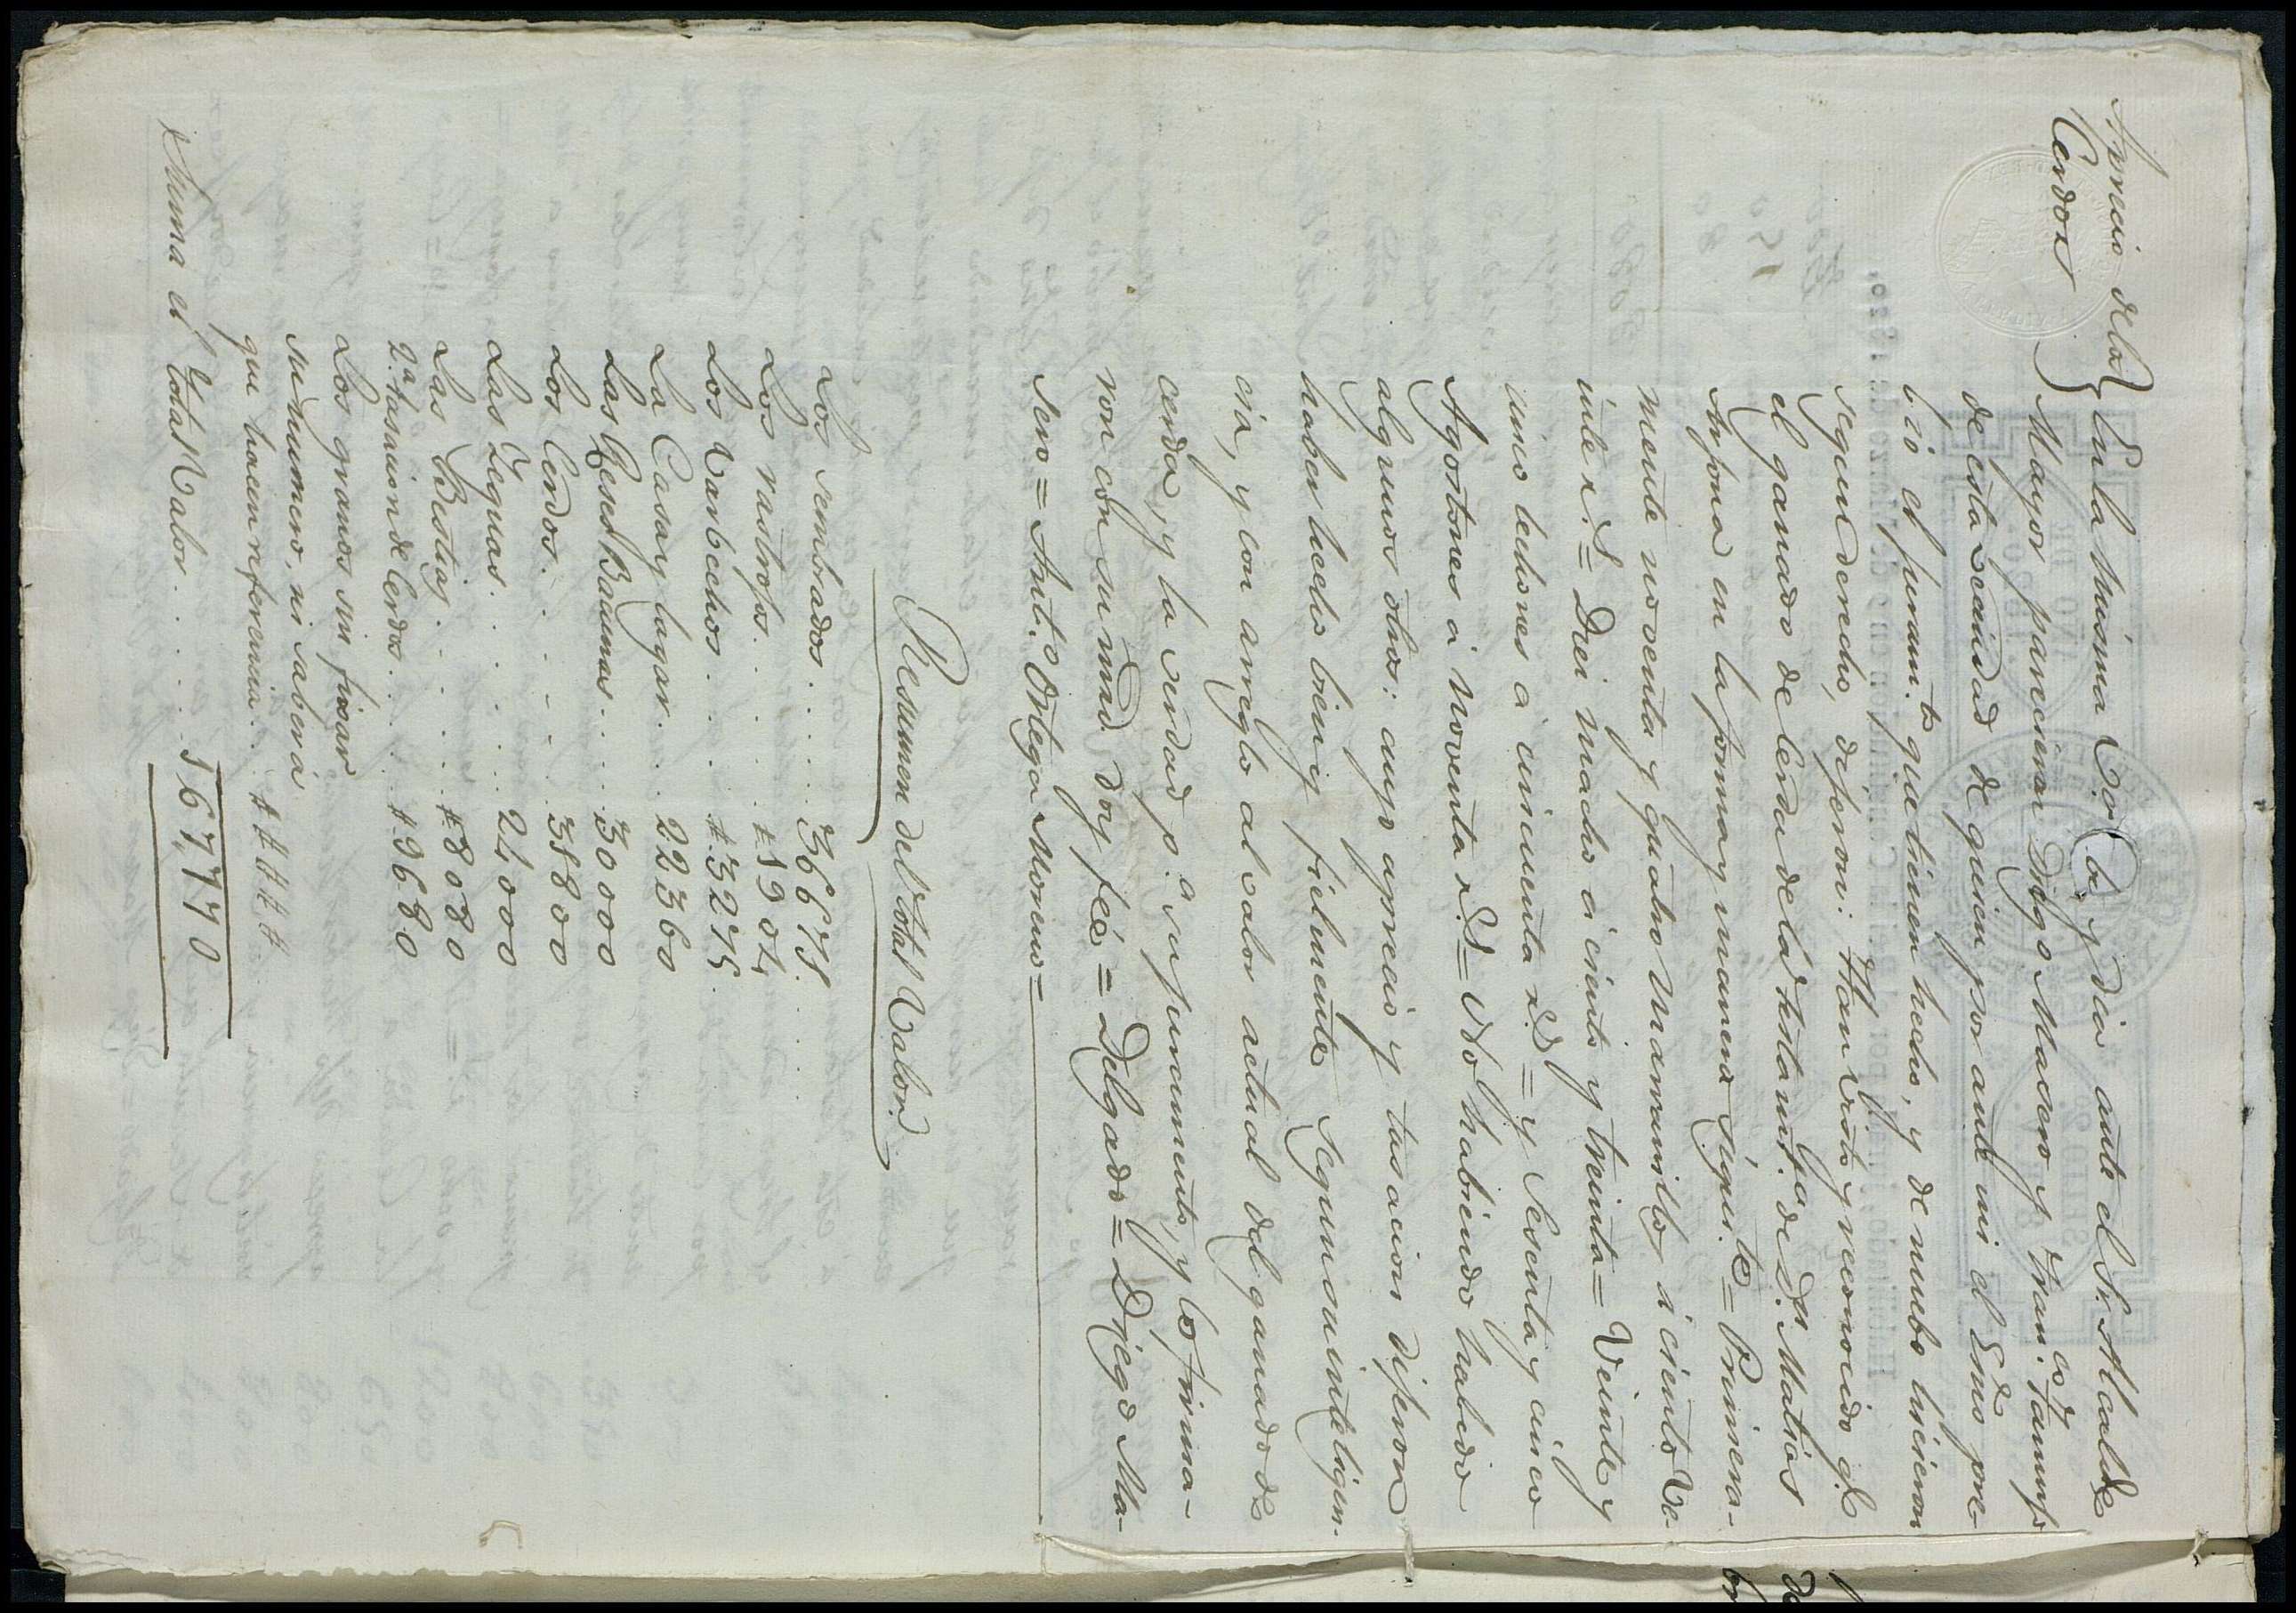 Aprecio de los
Cerdos
En la misma Va. y dia ante el Sr. Alcalde
Mayor parecieron Diego Macero y Fran.co
de esta Vecindad de quien por ante mi el Esno pre-
vio el juram.to que tienen hecho, y de nuebo hicieron
segun derecho, dijeron: Han visto y reconocido
el ganado de Cerda de la testament.ria de Dn Matias
Arjona en la forma y manera siguie.te = Primera-
mente noventa y quatro Marranillos a ciento ve-
inte rs = Dei macho a ciento y treinta = Veinte y
cinco lechones a cincuenta rs = y sesenta y cinco
Agostones a noventa rs = No habiendo habido
algunos otros: cuyo aprecio y tasacion dijeron
haber hecho bien y fielmente segun su inteligen-
cia, y con arreglo al valor actual del ganado de
cerda, y la verdad p.a su juramento, y lo firma-
ron con su mrd. doy feé = Delgado = Diego Ma-
sero = Ant.o Ortega Moreno =
Resumen del total Valor
Los sembrados . . . . . . 36675
Los rastrojos . . . . . #1904
Los Varbechos . . . . #3275
La Casa y lagar . . . 22360
Las Reses Bacunas . . . 30000
Los Cerdos . . . . . . 35800
Las Yeguas . . . . . . 24000
Las Bestias . . . . . . #8080
2.a tasacion de Cerdos . . . #9680
Los granos sin fixar
su numero, ni saber á
que hacen referencia . . ####
Suma el total Valor . . . . . 167,770